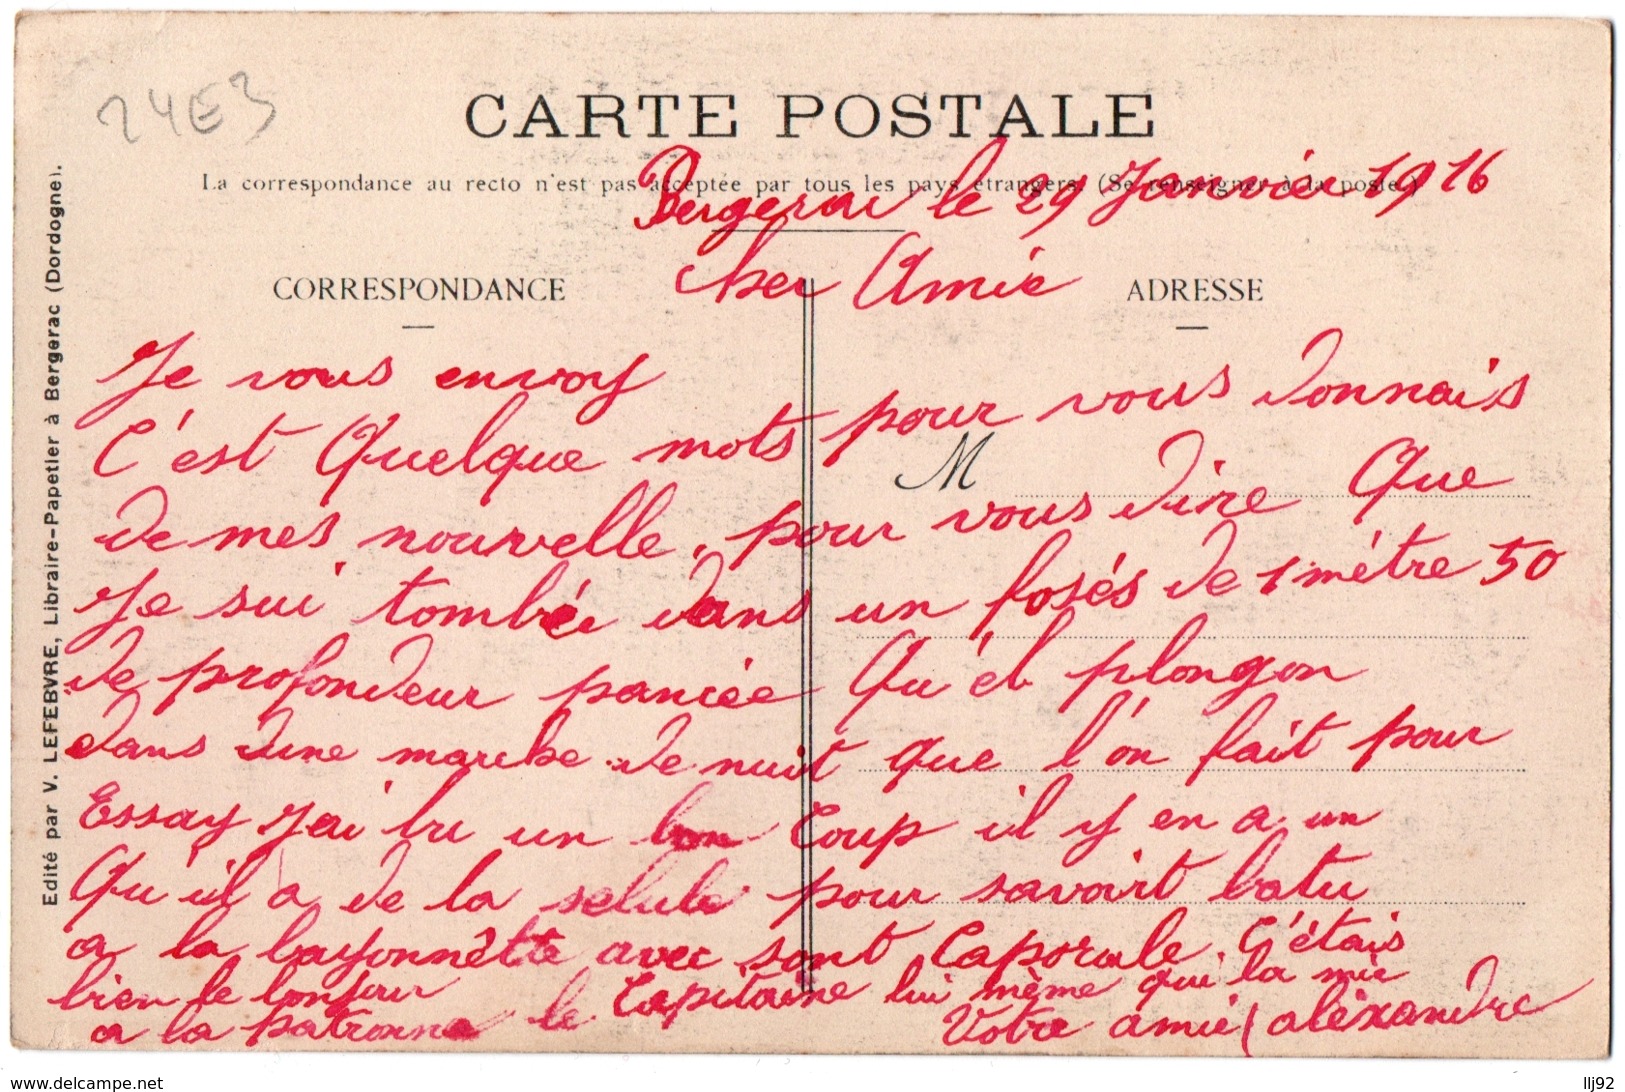 24E3
CARTE POSTALE
La correspondance au recto n'est pas acceptée par tous les pays étrangers. (Se renseigner à la poste.)
Bergerac le 29 Janvier 1916
Cher Amie
CORRESPONDANCE
ADRESSE
Je vous envoy
C'est Quelque mots pour vous donnais
M
de mes nourvelle. pour vous dire Que
Je sui tombée dans un fosés de 1 mètre 50
de profondeur pancée Qu'él plongon
dans dune marche de nuit que l'on fait pour
Essay j'ai bu un bon Coup il y en a un
Qu'il a de la selule pour savoirt batu
a la bayonnètte avec sont Caporale. C'étais
bien le bonjour le Capitaine lui mème qui la mie
a la patronne Votre amie alèxandre
Edité par V. LEFEBVRE, Libraire-Papetier à Bergerac (Dordogne).
www.delcampe.net
llj92